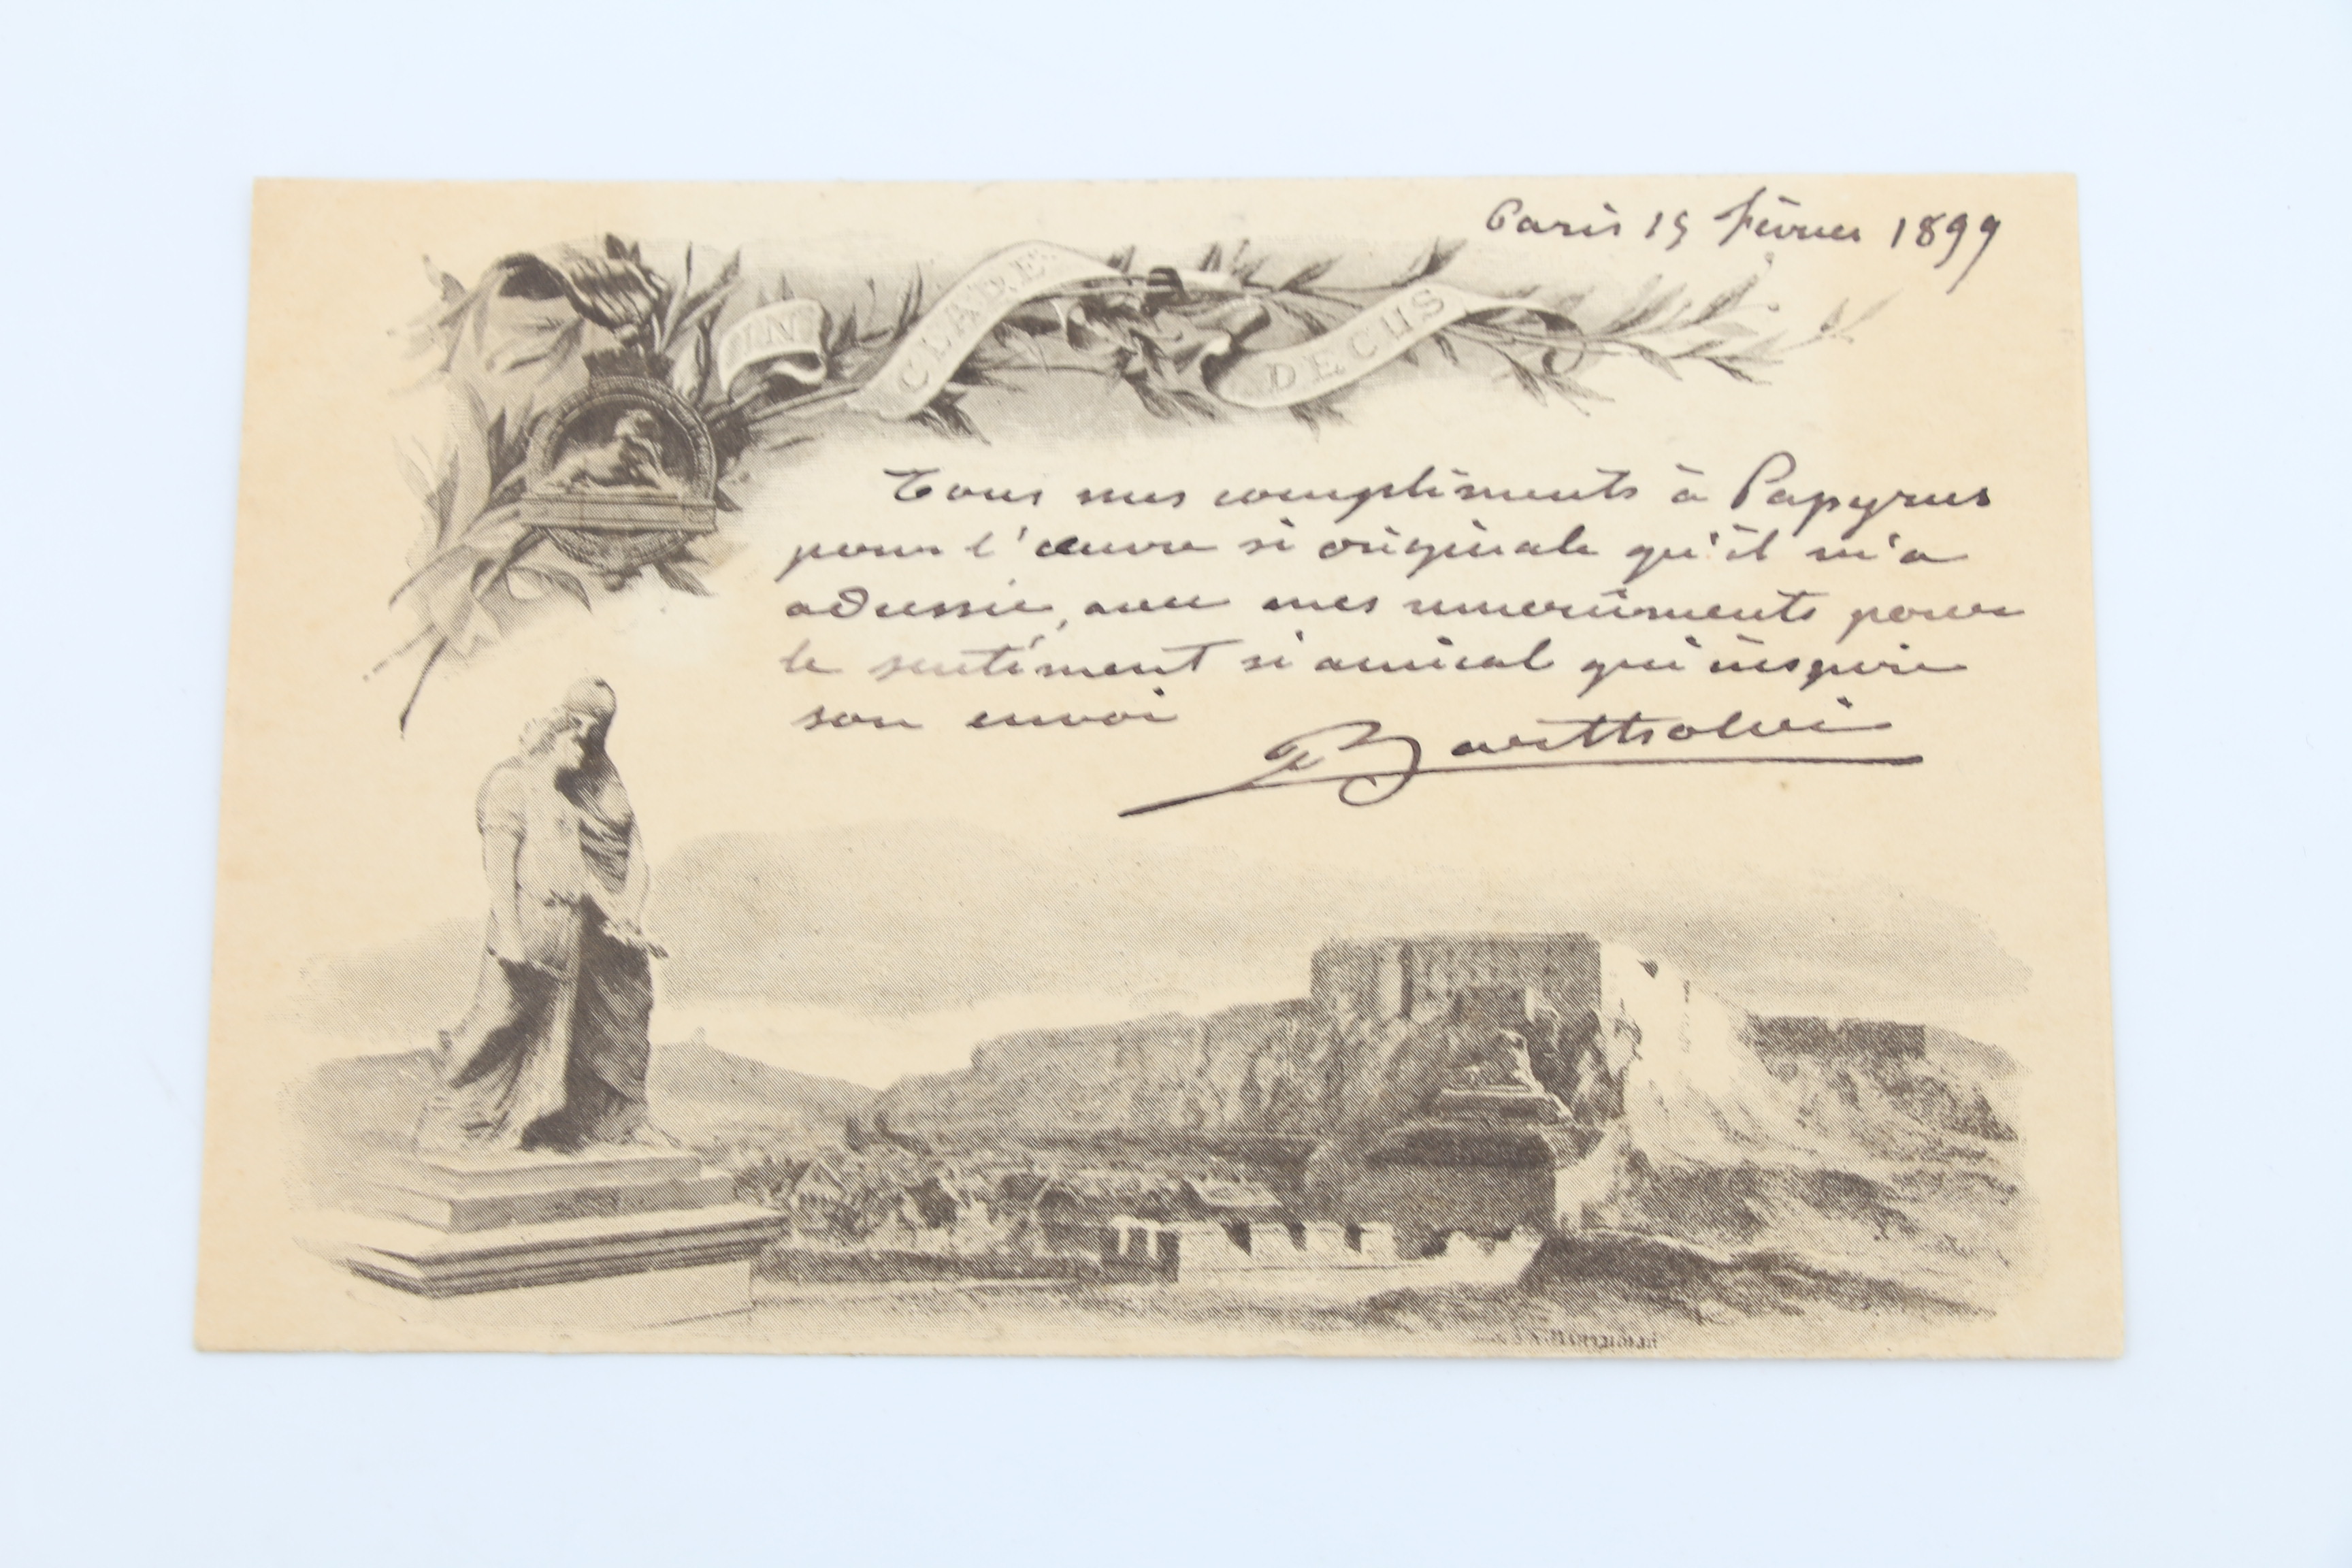 Paris 15 Février 1899
IN CLARIE DECUS
Tous mes compliments à Papyrus
pour l'œuvre si originale qu'il m'a
adressée, avec mes remerciments pour
le sentiment si amical qui inspire
son envoi
Bartholdi